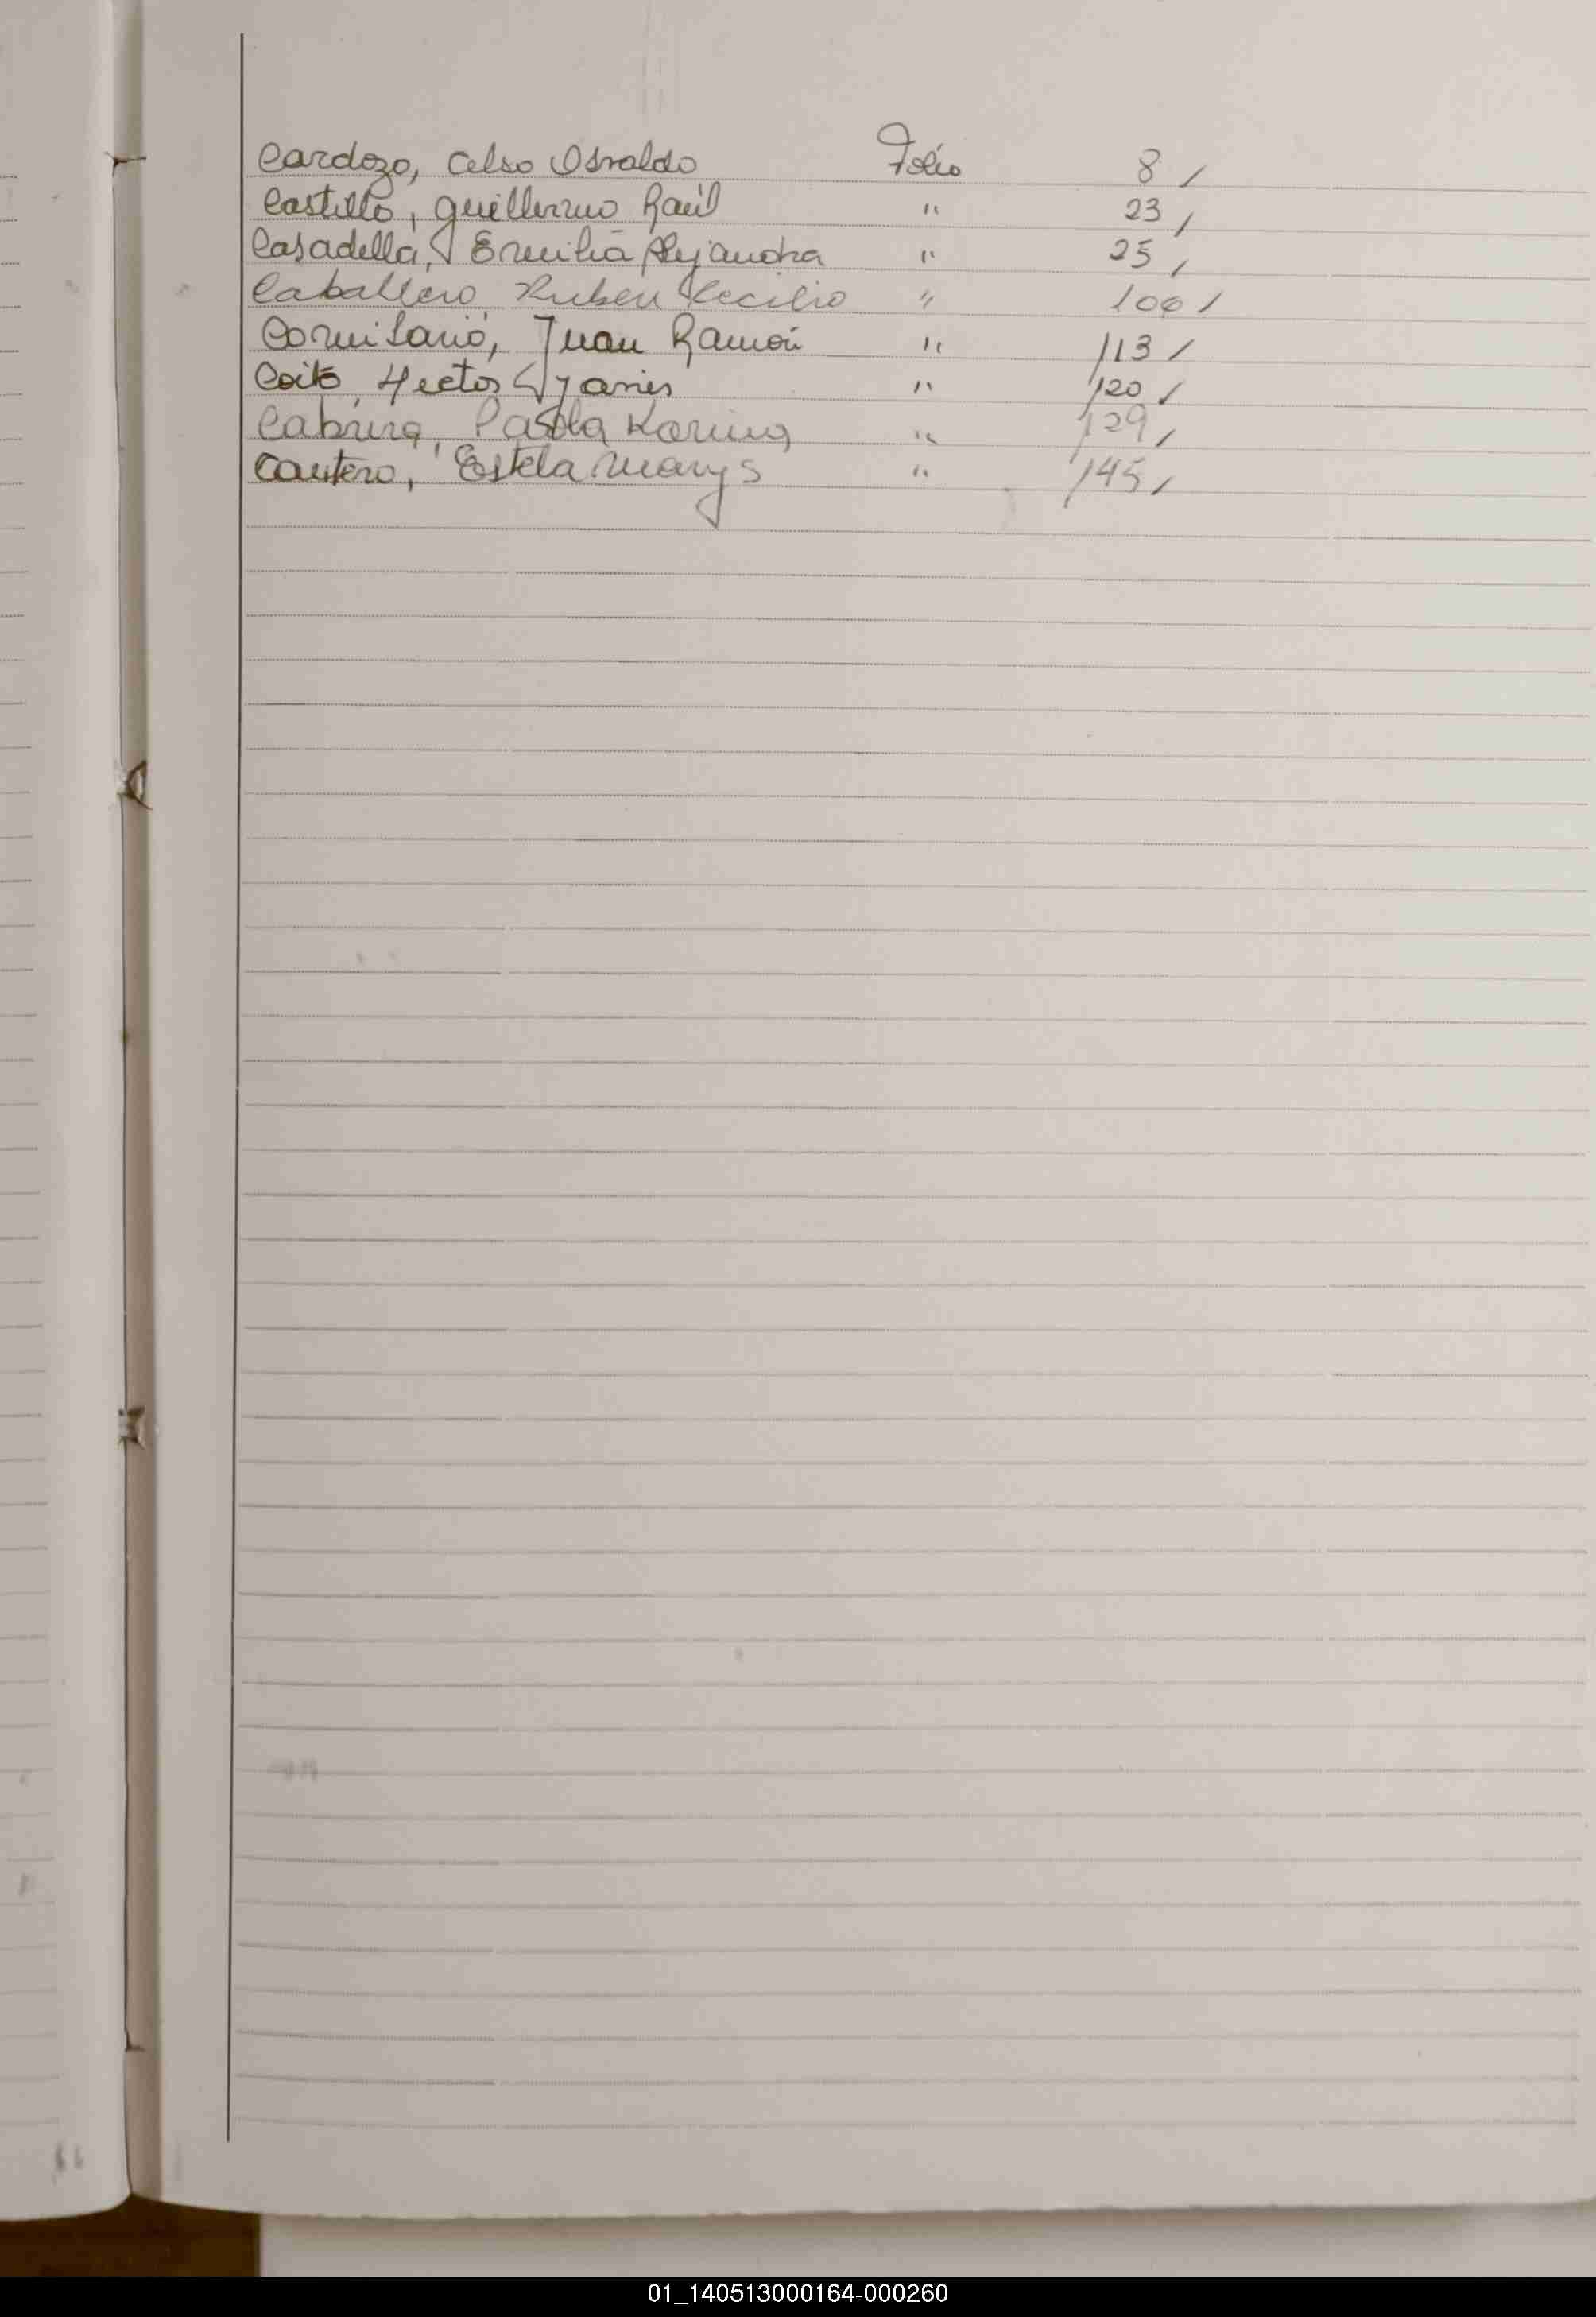 Cardozo, Celso Osvaldo Folio 8 /
Castillo, Guillermo Raúl " 23 /
Casadella, Emilia Alejandra " 25 /
Caballero Ruben Cecilio " 100 /
Comisario, Juan Ramón " 113 /
Coito, Hector " 120 /
Cabrera, Paola Karina " 129 /
Cantero, Estela Marys " 145 /
01_140513000164-000260